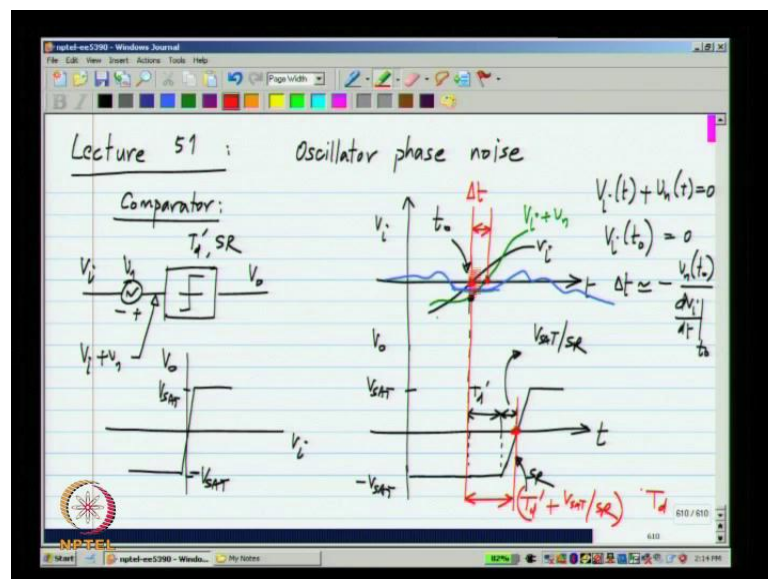 nptel-ee5390 - Windows Journal
File Edit View Insert Actions Tools Help
Page Width
B I
Lecture 51 : Oscillator phase noise
Comparator:
Td', SR
Vi
Vn
- +
Vo
Vi + Vn
Vo
VSAT
Vi
-VSAT
Δt
Vi
to
Vi + Vn
Vi
t
Vi(t) + Vn(t) = 0
Vi(to) = 0
Δt ≃ - Vn(to) / dVi/dt | to
Vo
VSAT/SR
VSAT
Td'
t
-VSAT
SR
(Td' + VSAT/SR) Td
NPTEL
610 / 610
610
Start
nptel-ee5390 - Windo...
My Notes
82%
2:14 PM